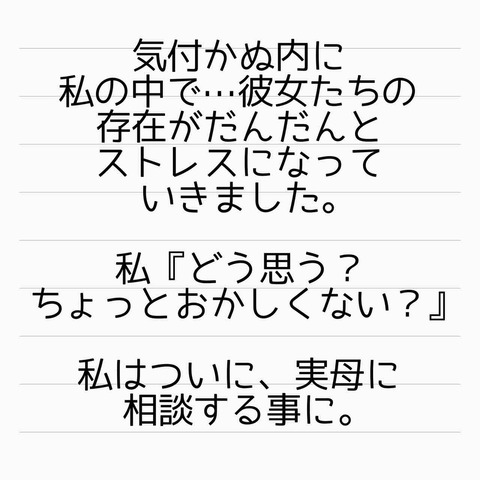 気付かぬ内に
私の中で…彼女たちの
存在がだんだんと
ストレスになって
いきました。
私『どう思う？
ちょっとおかしくない？』
私はついに、実母に
相談する事に。